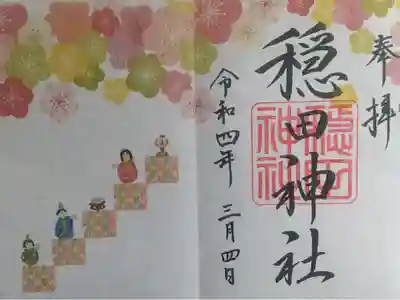 奉拝
穏田神社
穏田
神社
令和四年 三月四日